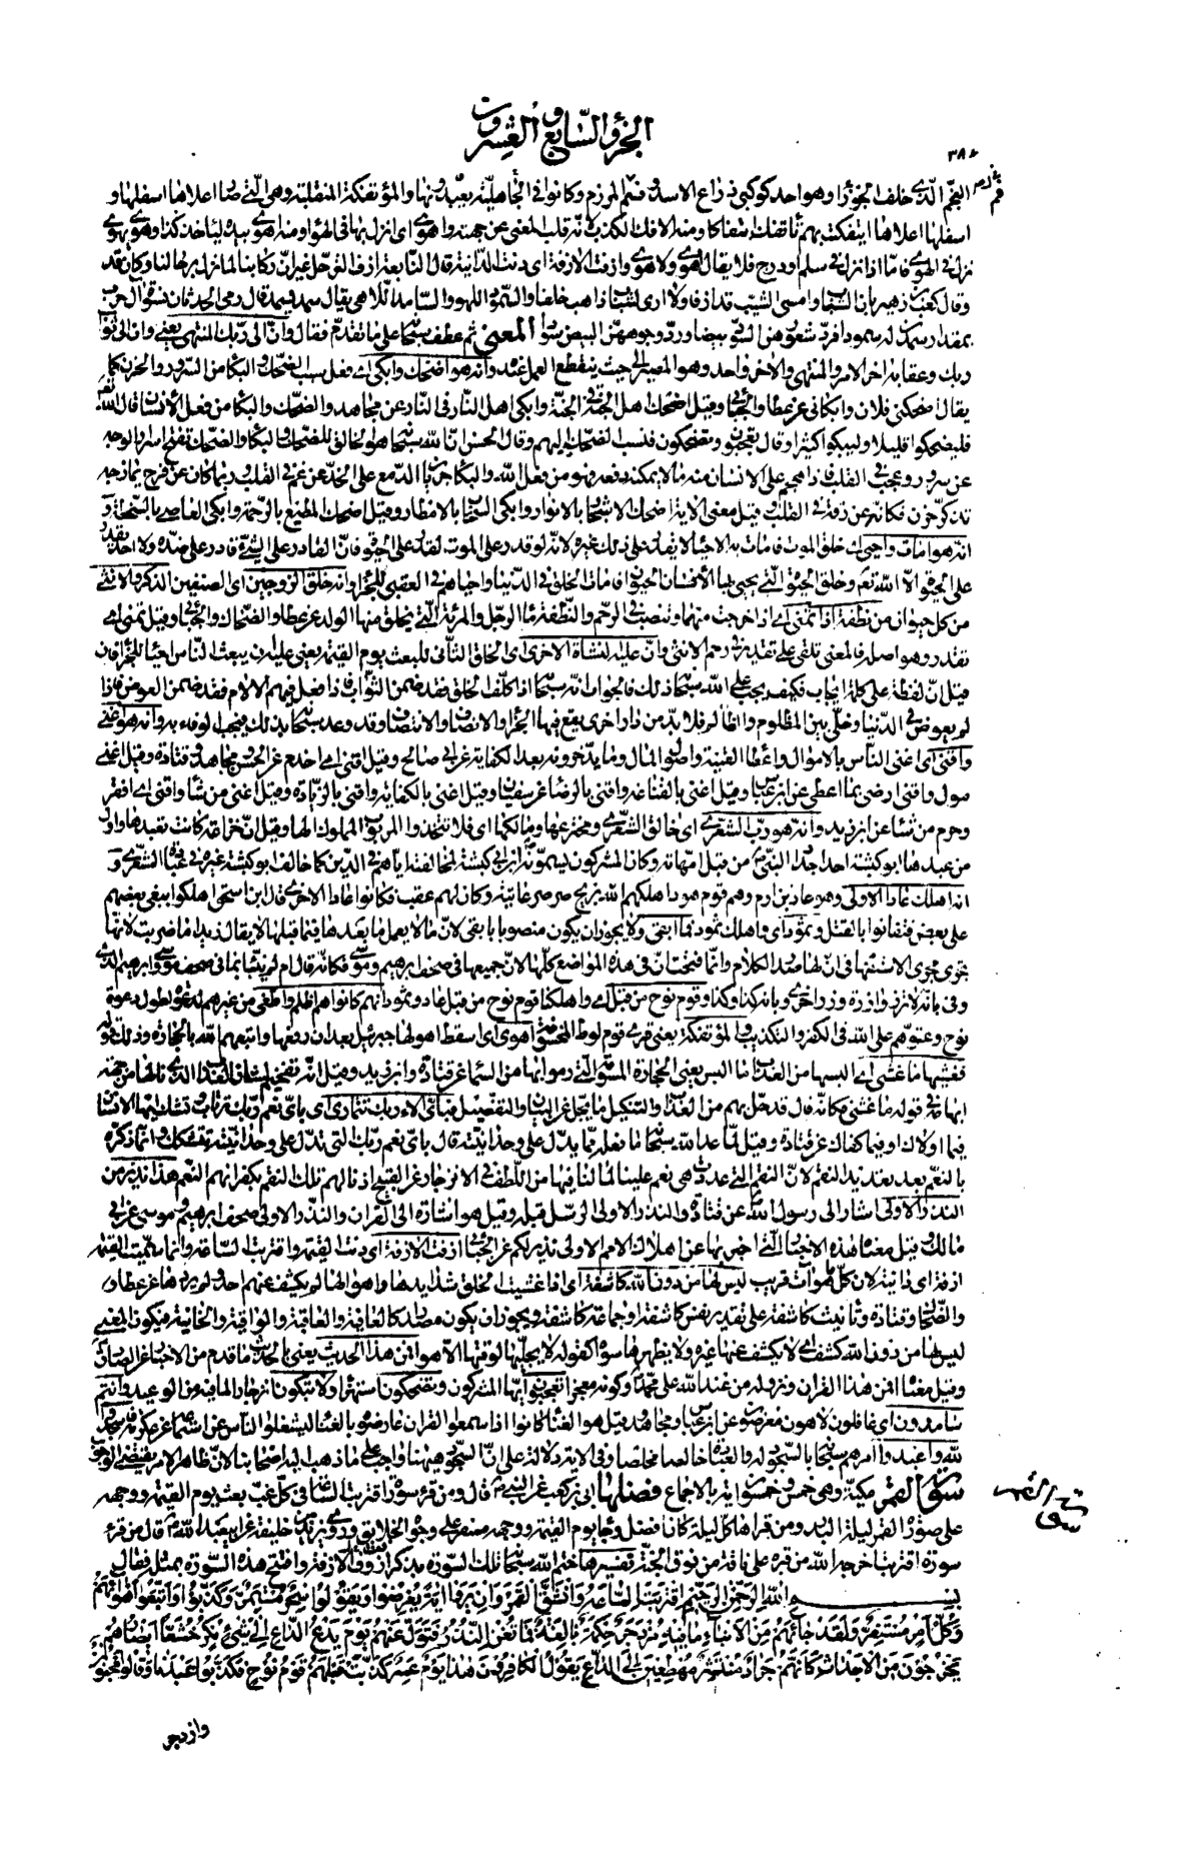 الجزؤ السابع و العشرون
٣٨٠
النجم الذى خلف الجوزا وهو احد كوكبى ذراع الاسد وقسم المرزم وكانوا فى الجاهلية يعبدونها والمؤتفكة المنقلبة وهى التى صار اعلاها اسفلها و
اسفلها اعلاها ايتفكت بهم تأتفك ائتفاكا ومنه الافك الكذب لانه قلب المعنى عن جهته واهوى اى انزل بها فى الهوا ومنه اهوى بيده ليأخذ كذا وهوى يهوى
نزل فى الهوى فامّا اذا نزل فى سلم او درج فلا يقال اهوى ولا هوى وازفت الازفة اى دنت الدانية قال النابغة ازف الترحل غير ان ركابنا لما تزل برحالنا وكان قد
وقال كعب بن زهير بان الشباب وامسى الشيب قد ازفا ولا ارى لشباب ذاهب خلفا والسمود اللهو والسامد اللاهى يقال سمد يسمد قال رمى الحدثان نسوة ال حرب
بمقدار سمدن له سمودا فرد شعورهن السود بيضا ورد وجوههن البيض سودا المعنى ثم عطف سبحانه على ما تقدم فقال وان الى ربك المنتهى يعنى وان الى ثواب
ربك وعقابه اخر الامر والمنتهى والاخر واحد وهو المصير الى حيث ينقطع العمل عنده وانه هو اضحك وابكى اى فعل سبب الضحك والبكا من السرور والحزن كما
يقال اضحكنى فلان وابكانى عن عطا والجبائى وقيل اضحك اهل الجنة فى الجنة وابكى اهل النار فى النار عن مجاهد والضحك والبكا من فعل الانسان قال الله تعالى
فليضحكوا قليلا وليبكوا كثيرا وقال تعجبون وتضحكون فنسب الضحك اليهم وقال الحسن ان الله سبحانه هو الخالق للضحك والبكا والضحك تفتح اسرار الوجه
عن سرور وعجب فى القلب فاذا هجم على الانسان منه ما لا يمكنه دفعه فهو من فعل الله والبكا جريان الدمع على الخد عن غم فى القلب وربما كان عن فرح يمازجه
تذكر حزن فكانه عن رقة فى القلب وقيل معنى الاية اضحك الاشجار بالانوار وابكى السحاب بالامطار وقيل اضحك المطيع بالرحمة وابكى العاصى بالسخطة و
انه هو امات واحيى اى خلق الموت فامات به الاحياء لا يقدر على ذلك غيره لانه لو قدر على الموت لقدر على الحيوة فان القادر على الشئ قادر على ضده ولا احد يقدر
على الحيوة الا الله تعالى وخلق الحيوة التى يحيى بها الانسان والحيوان فامات الخلق فى الدنيا واحياهم فى العقبى للجزاء وانه خلق الزوجين اى الصنفين الذكر والانثى
من كل حيوان من نطفة اذا تمنى اى اذا خرجت منهما وتنصب فى الرحم والنطفة ماء الرجل والمرئة التى يخلق منها الولد عن عطا والضحاك والجبائى وقيل تمنى اى
تقدر وهو اصله فالمعنى تلقى على تقدير فى رحم الانثى وان عليه النشاة الاخرى اى الخلق الثانى للبعث يوم القيمة يعنى عليه ان يبعث الناس احياء للجزاء فان
قيل ان لفظة على كلمة ايجاب فكيف يجب على الله سبحانه ذلك فالجواب انه سبحانه اذا كلف الخلق فقد ضمن الثواب فاذا فعل فيهم الالام فقد ضمن العوض فاذا
لم يعوض فى الدنيا وخلى بين المظلوم والظالم فلا بد من دار اخرى يقع فيها الجزاء والانصاف والانتصاف وقد وعد سبحانه بذلك فيجب الوفاء به وانه هو اغنى
واقنى اى اغنى الناس بالاموال واعطاهم القنية واصول المال وما يدخرونه بعد الكفاية عن ابى صالح وقيل اقنى اى اخدم عن الحسن ومجاهد وقتادة وقيل اغنى
مول واقنى ارضى بما اعطى عن ابن عباس وقيل اغنى بالقناعة واقنى بالرضا عن سفيان وقيل اغنى بالكفاية واقنى بالزيادة وقيل اغنى من شاء واقنى اى افقر
وحرم من شاء عن ابن زيد وانه هو رب الشعرى اى خالق الشعرى ومخترعها ومالكها اى فلا تتخذوا المربوب المملوك الها وقيل ان خزاعة كانت تعبدها واول
من عبدها ابو كبشة احد اجداد النبى ص من قبل امهاته وكان المشركون يسمونه ابن ابى كبشة لمخالفته اياهم فى الدين كما خالف ابو كبشة غيره فى عبادة الشعرى و
انه اهلك عادا الاولى وهو عاد بن ارم وهم قوم هود اهلكهم الله بريح صرصر عاتية وكان لهم عقب فكانوا عادا الاخرى قال ابن اسحق اهلكوا ببغى بعضهم
على بعض فتفانوا بالقتل وثمود اى واهلك ثمود فما ابقى ولا يجوز ان يكون منصوبا بابقى لان ما لا يعمل ما بعدها فيما قبلها لا يقال زيدا ما ضربت لانها
تجرى مجرى الاستفهام فى ان لها صدر الكلام وانما فتحت ان فى هذه المواضع كلها لان جميعها فى صحف ابرهيم وموسى فكانه قال ام لم ينبأ بما فى صحف موسى وابرهيم الذى
وفى بانه لا تزر وازرة وزر اخرى وبانه كذا وكذا وقوم نوح من قبل اى واهلكنا قوم نوح من قبل عاد وثمود انهم كانوا هم اظلم واطغى من غيرهم لطول دعوة
نوح وعتوهم على الله فى الكفر والتكذيب والمؤتفكة يعنى قرى قوم لوط المخسوفة اهوى اى اسقط اهواها جبرئيل بعد ان رفعها واتبعهم الله بالحجارة وذلك قوله
فغشيها ما غشى اى البسها من العذاب ما البس يعنى الحجارة المسومة التى رموا بها من السماء عن قتادة وابن زيد وقيل انه تفخيم لشان العذاب الذى نالها من جهة
ابهامه فى قوله ما غشى فكانه قال قد حل بهم من العذاب والتنكيل ما يجل عن البيان والتفصيل فباى الاء ربك تتمارى اى باى نعم ربك ترتاب وتشك ايها الانسان
فيما اولاك او فيما كفاك عن قتادة وقيل لما عد الله سبحانه ما فعله مما يدل على وحدانيته قال باى نعم ربك التى تدل على وحدانيته تتشكك وانما ذكره
بالنعم بعد تعديد النقم لان النقم التى عددت هى نعم علينا لما لنا فيها من اللطف فى الانزجار عن القبيح اذ نالهم تلك النقم بكفرانهم النعم هذا نذير من
النذر الاولى اشار الى رسول الله عن قتادة والنذر الاولى الرسل قبله وقيل هو اشارة الى القران والنذر الاولى صحف ابرهيم وموسى عن ابى
مالك وقيل معناه هذه الاخبار التى اخبر بها عن اهلاك الامم الاولى نذير لكم عن الجبائى ازفت الازفة اى دنت القيمة واقتربت الساعة وانما سميت القيمة
ازفة اى دانية لان كل ما هو آت قريب ليس لها من دون الله كاشفة اى اذا غشيت الخلق شدايدها واهوالها لم يكشف عنهم احد ولم يردها عن عطا و
والضحاك وقتادة وتانيث كاشفة على تقدير نفس كاشفة او جماعة كاشفة ويجوز ان يكون مصدرا كالعافية والعاقبة والواقية والخائنة فيكون المعنى
ليس لها من دون الله كشف اى لا يكشف عنها غيره ولا يظهرها سواه كقوله لا يجليها لوقتها الا هو افمن هذا الحديث يعنى بالحديث ما قدم من الاخبار عن الصادق
وقيل معناه افمن هذا القران ونزوله من عند الله على محمد ص وكونه معجزا تعجبون ايها المشركون وتضحكون استهزاء ولا تبكون انزجارا لما فيه من الوعيد وانتم
سامدون اى غافلون لاهون معرضون عن ابن عباس ومجاهد وقيل هو الغناء كانوا اذا سمعوا القران عارضوه بالغناء ليشغلوا الناس عن استماعه عن عكرمة فاسجدوا
لله واعبدوا امرهم سبحانه بالسجود له والعبادة خالصا مخلصا وفى الاية دلالة على ان السجود ههنا واجب على ما ذهب اليه اصحابنا لان ظاهر الامر يقتضى الوجوب
سورة القمر مكية وهى خمس وخمسون اية بالاجماع فضلها ابى بن كعب عن النبى ص قال ومن قرء سورة اقتربت الساعة فى كل غب بعث يوم القيمة ووجهه
على صورة القمر ليلة البدر ومن قراها كل ليلة كان افضل وجاء يوم القيمة ووجهه مسفر على وجوه الخلايق وروى يزيد بن خليفة عن ابى عبد الله ع قال من قرء
سورة اقتربت اخرجه الله من قبره على ناقة من نوق الجنة تفسيرها ختم الله سبحانه تلك السورة بذكر ازوف الازفة وافتتح هذه السورة بمثله فقال
بسم الله الرحمن الرحيم اقتربت الساعة وانشق القمر وان يروا اية يعرضوا ويقولوا سحر مستمر وكذبوا واتبعوا اهوائهم
وكل امر مستقر ولقد جائهم من الانباء ما فيه مزدجر حكمة بالغة فما تغن النذر فتول عنهم يوم يدع الداع الى شئ نكر خشعا ابصارهم
يخرجون من الاجداث كانهم جراد منتشر مهطعين الى الداع يقول الكافرون هذا يوم عسر كذبت قبلهم قوم نوح فكذبوا عبدنا وقالوا مجنون
سورة القمر
وازدجر